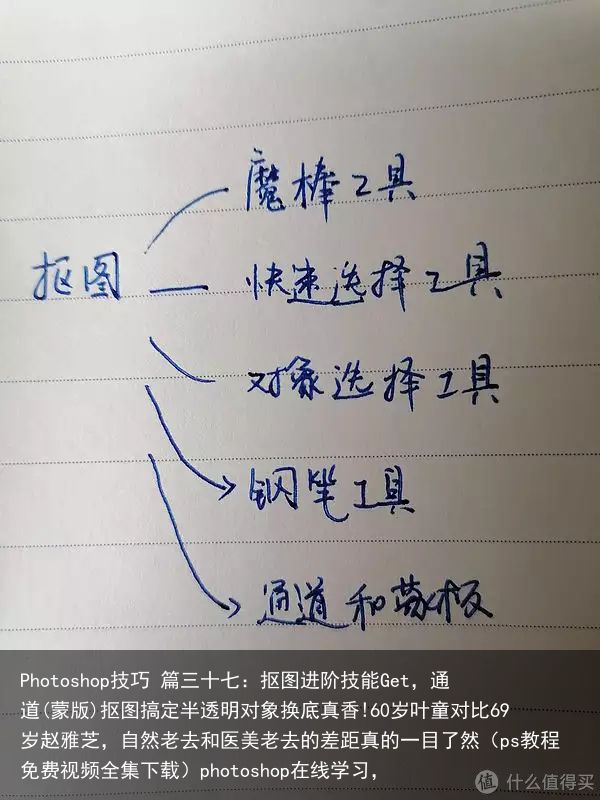 魔棒工具
抠图
快速选择工具
对象选择工具
钢笔工具
通道和蒙板
Photoshop技巧 篇三十七：抠图进阶技能Get，通
道(蒙版)抠图搞定半透明对象换底真香!60岁叶童对比69
岁赵雅芝，自然老去和医美老去的差距真的一目了然（ps教程
免费视频全集下载）photoshop在线学习，
值 什么值得买